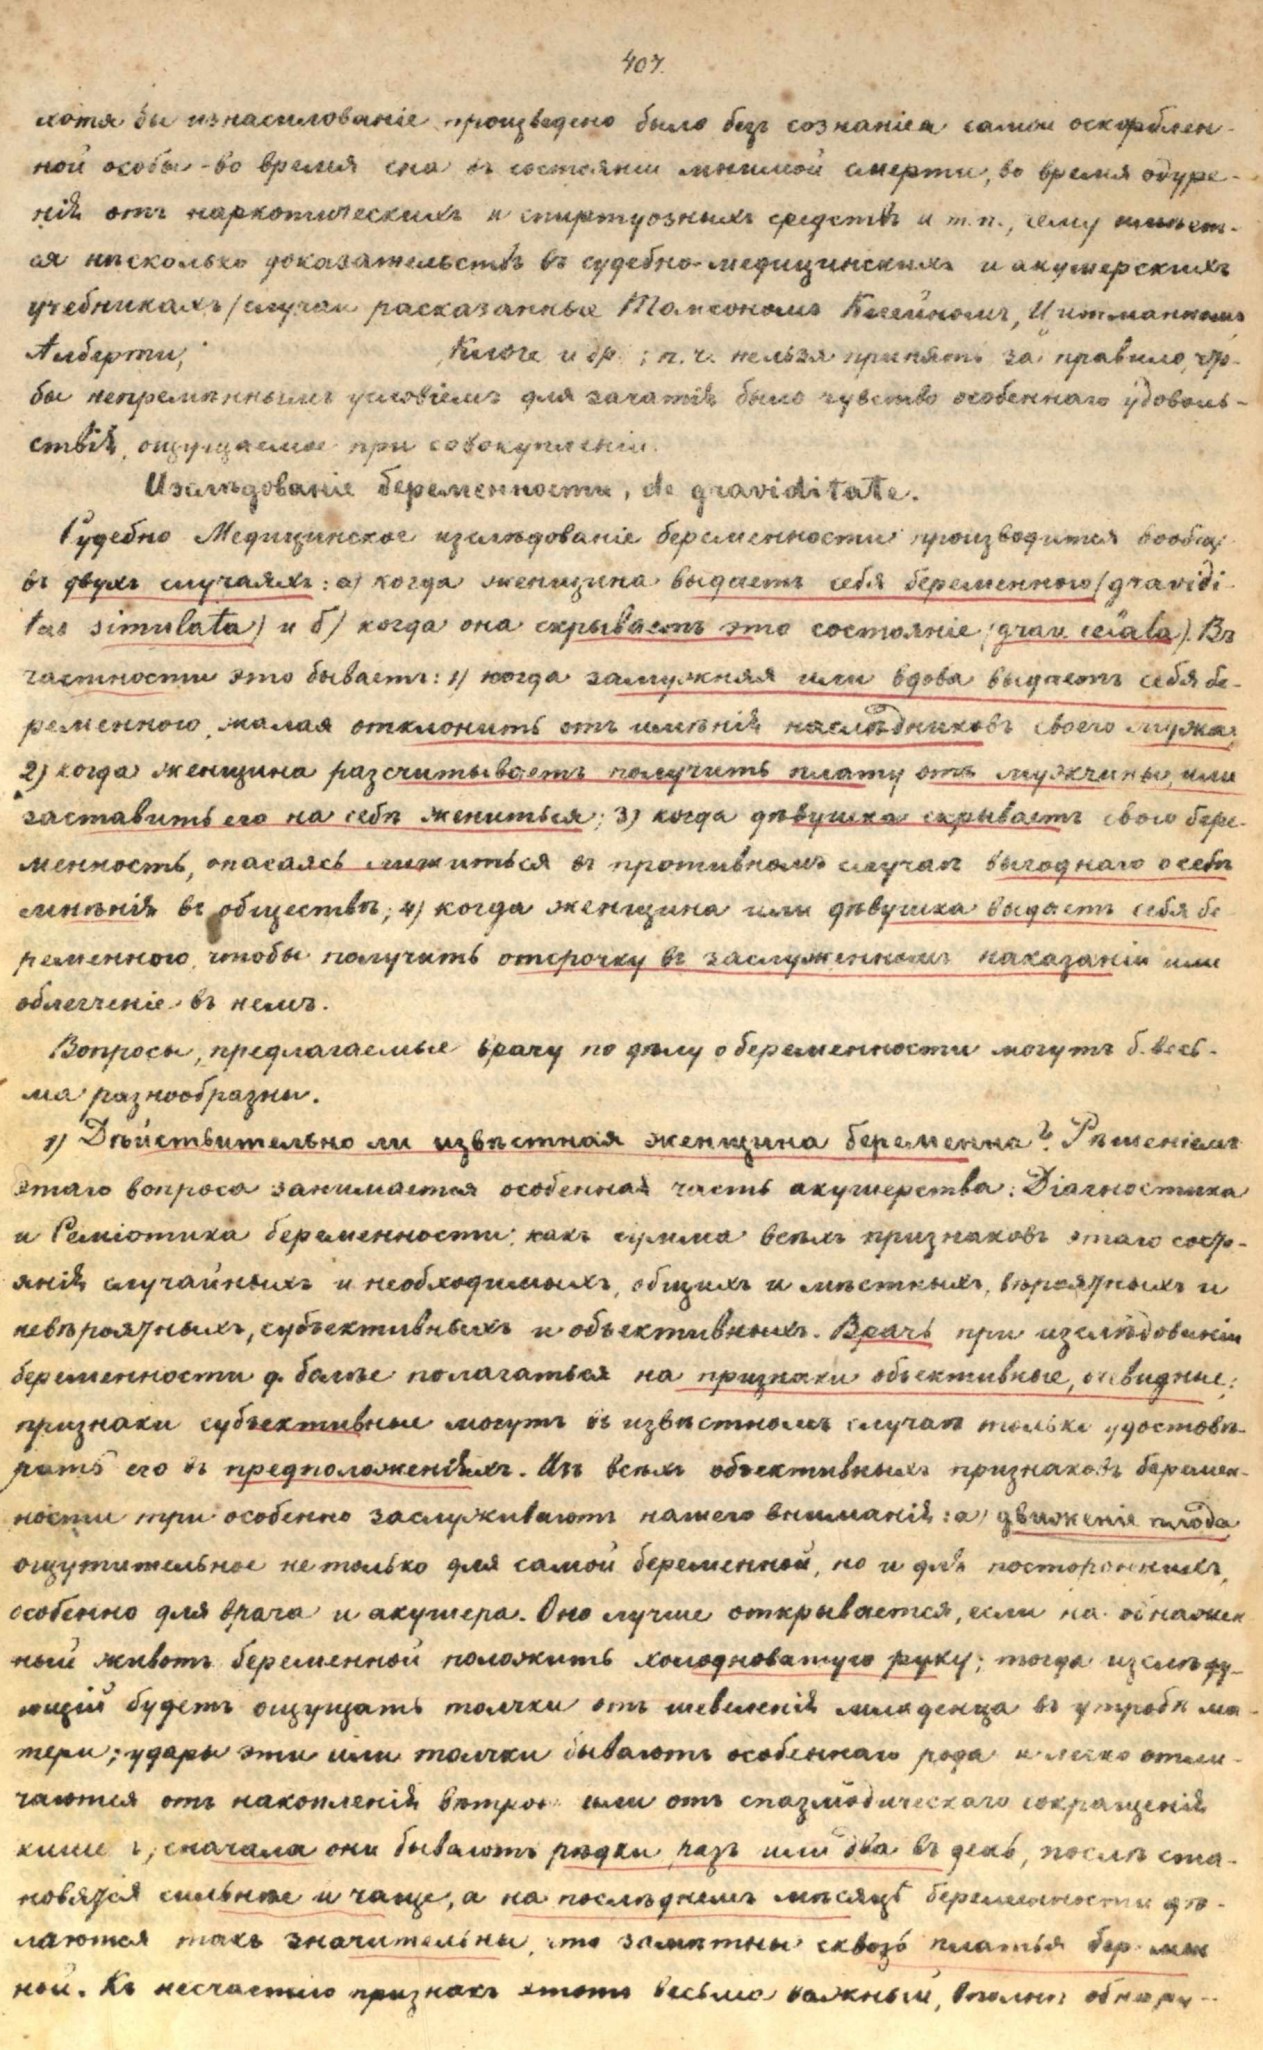 407.
хотя бы изнасилованіе произведено было безъ сознанія самой оскорблен-
ной особы - во время сна въ состояніи мнимой смерти, во время одуре-
нія отъ наркотическихъ и спиртуозныхъ средствъ и т.п., чему имѣет-
ся нѣсколько доказательствъ въ судебно-медицинскихъ и акушерскихъ
учебникахъ (случаи расказанные Томсономъ Клейномъ, Цитманномъ
Алберти, Клюге и др.; п.ч. нельзя принять за правило, что-
бы непремѣннымъ условіемъ для зачатія было чувство особеннаго удоволь-
ствія, ощущаемое при совокупленіи.
Изслѣдованіе беременности, de graviditate.
Судебно Медицинское изслѣдованіе беременности производится вообще
въ двухъ случаяхъ: а) когда женщина выдаетъ себя беременною (gravidi-
tas simulata) и б) когда она скрываетъ это состояніе (grav. celata). Въ
частности это бываетъ: 1) когда замужняя или вдова выдаетъ себя бе-
ременною, желая отклонить отъ имѣнія наслѣдниковъ своего мужа;
2) когда женщина разсчитываетъ получить плату отъ мужчины, или
заставить его на себѣ жениться; 3) когда дѣвушка скрываетъ свою бере-
менность, опасаясь лишиться въ противномъ случаѣ выгоднаго о себѣ
мнѣнія въ обществѣ; 4) когда женщина или дѣвушка выдаетъ себя бе-
ременною, чтобы получить отсрочку въ заслуженномъ наказаніи или
облегченіе въ немъ.
Вопросы, предлагаемые врачу по дѣлу о беременности могутъ б. весь-
ма разнообразны.
1) Дѣйствительно ли извѣстная женщина беременна? Рѣшеніемъ
этаго вопроса занимается особенная часть акушерства: Діагностика
и Семіотика беременности, какъ сумма всѣхъ признаковъ этаго состо-
янія случайныхъ и необходимыхъ, общихъ и мѣстныхъ, вѣроятныхъ и
невѣроятныхъ, субъективныхъ и объективныхъ. Врачъ при изслѣдованіи
беременности д. болѣе полагаться на признаки объективные, очевидные;
признаки субъективные могутъ въ извѣстномъ случаѣ только удостовѣ-
рять его въ предположеніяхъ. Изъ всѣхъ объективныхъ признаковъ беремен-
ности три особенно заслуживаютъ нашего вниманія: а) движеніе плода
ощутительное не только для самой беременной, но и для постороннихъ,
особенно для врача и акушера. Оно лучше открывается, если на обнажен
ный животъ беременной положить холодноватую руку; тогда изслѣду-
ющій будетъ ощущать толчки отъ шевеленія младенца въ утробѣ ма-
тери; удары эти или толчки бываютъ особеннаго рода и легко отли-
чаются отъ накопленія вѣтровъ или отъ спазмодическаго сокращенія
кишекъ; сначала они бываютъ рѣдки, разъ или два въ день, послѣ ста-
новятся сильнѣе и чаще, а на послѣднемъ мѣсяцѣ беременности дѣ-
лаются такъ значительны, что замѣтны сквозь платья беремен
ной. Къ несчастію признакъ этотъ весьма важный, вполнѣ обнару-